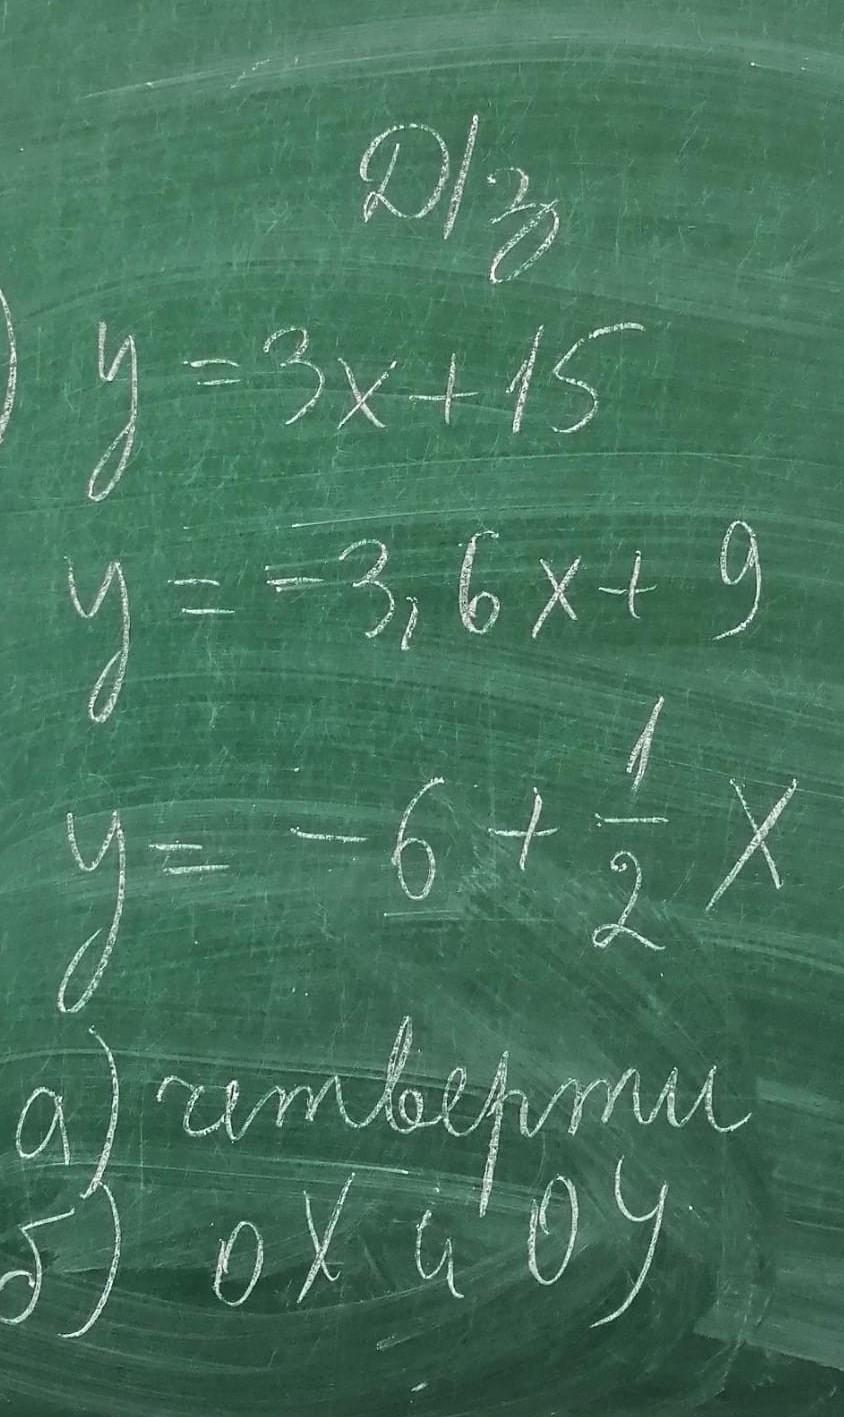 Д/з
) y = 3x + 15
y = -3,6x + 9
y = -6 + 1/2 x
а) четверти
б) OX и OY